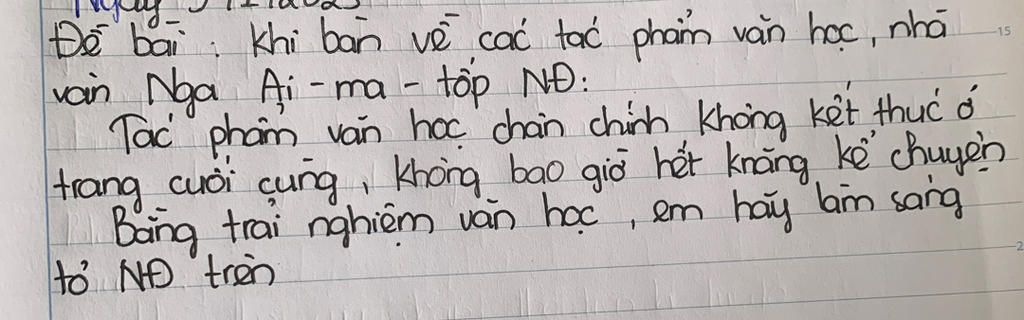 Ngày
Đề bài : Khi bàn về các tác phẩm văn học, nhà
văn Nga Ai-ma-tốp NĐ:
Tác phẩm văn học chân chính không kết thúc ở
trang cuối cùng, không bao giờ hết knăng kể chuyện
Bằng trải nghiệm văn học, em hãy làm sáng
tỏ NĐ trên
15
2